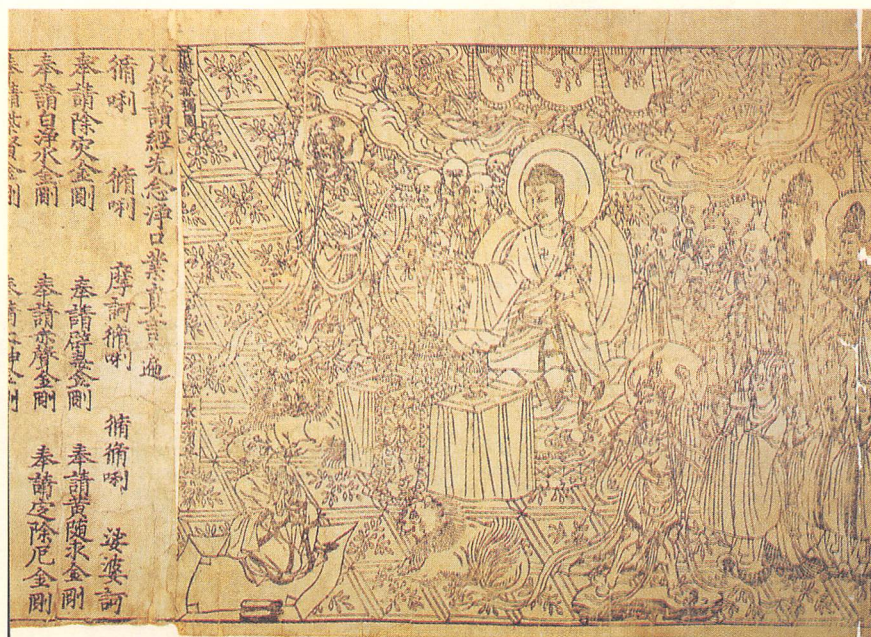 祇樹給孤獨園
凡欲讀經先念淨口業真言一遍
脩唎 脩唎 摩訶脩唎 脩脩唎 娑婆訶
奉請除灾金剛 奉請辟毒金剛 奉請黄随求金剛
奉請白淨水金剛 奉請赤聲金剛 奉請定除厄金剛
奉請紫賢金剛